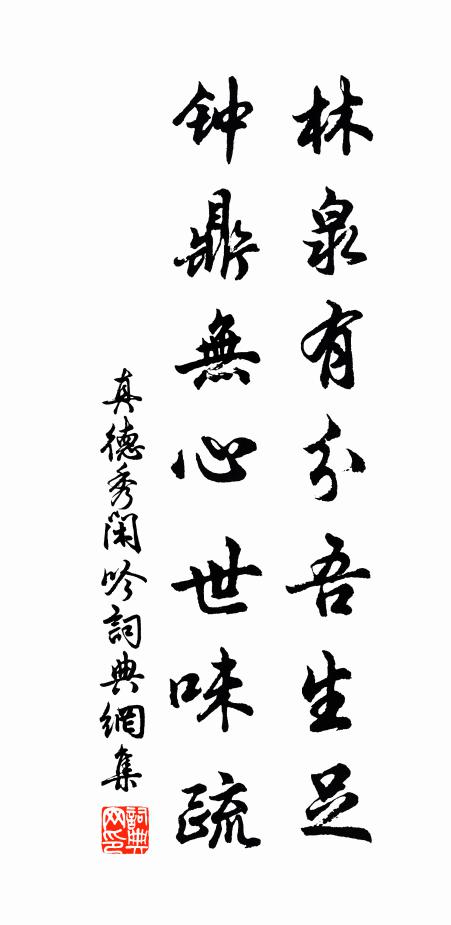 林泉有分吾生足
钟鼎無心世味疏
真德秀閑吟詞典網集
詞典网印